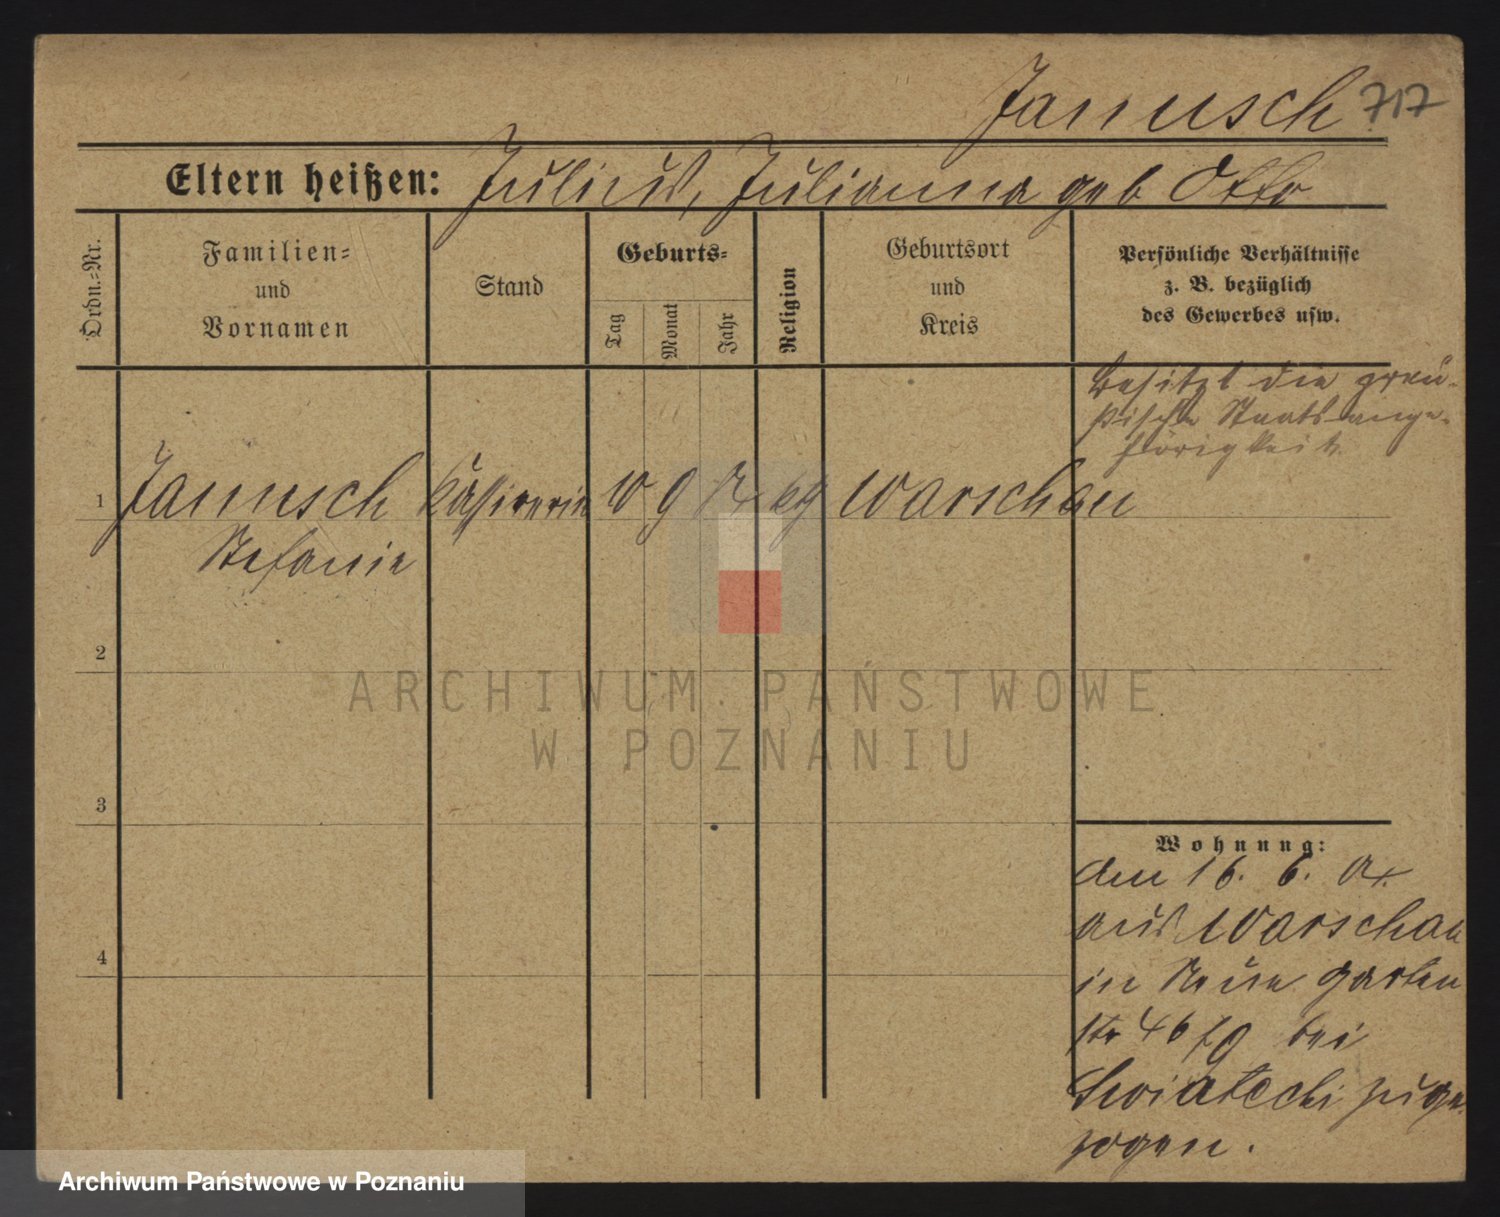 Janusch 717
Eltern heißen: Julius, Julianna geb Otto
Ordn.=Nr.
Familien=
und
Vornamen
Stand
Geburts=
Tag
Monat
Jahr
Religion
Geburtsort
und
Kreis
Persönliche Verhältnisse
z. B. bezüglich
des Gewerbes usw.
Besitzt die preu-
ßische Staatsange-
hörigkeit.
1 Janusch Kassirerin 10 9 Warschau
Stefanie
2
3
4
Wohnung:
den 16. 6.
aus Warschau
in Neue Garten
str 46 bei
Swiatecki zuge
zogen.
ARCHIWUM PAŃSTWOWE
W POZNANIU
Archiwum Państwowe w Poznaniu